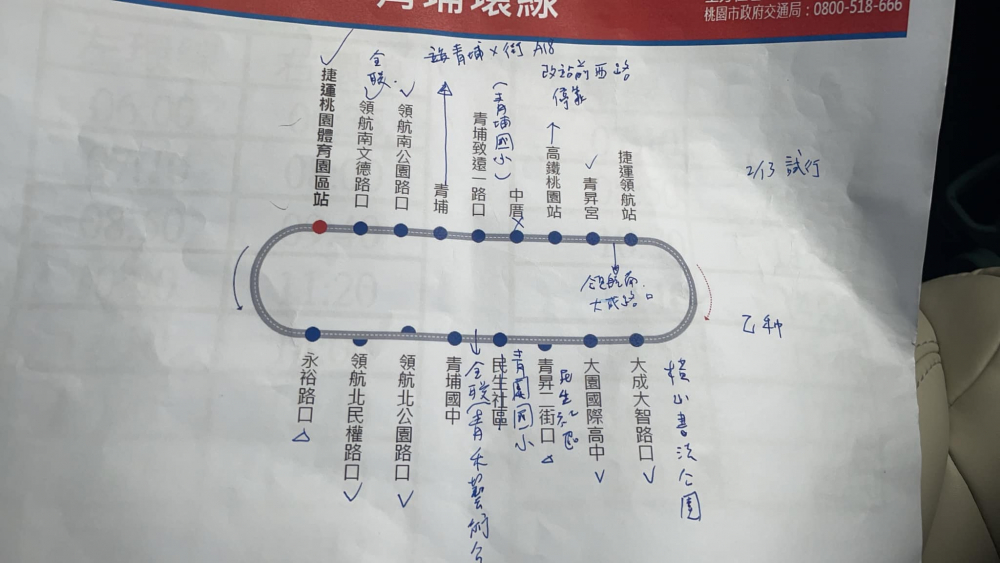 青埔環線
桃園市政府交通局：0800-518-666
全聯
青埔
A18
改站前西路
停靠
(青埔國小)
2/13 試行
捷運桃園體育園區站
領航南文德路口
領航南公園路口
青埔
青埔致遠一路口
中厝
高鐵桃園站
青昇宮
捷運領航站
領航南
大成路口
永裕路口
領航北民權路口
領航北公園路口
青埔國中
全聯(青禾藝術
民生社區
青園國小
青昇二街口
民生社區
大園國際高中
大成大智路口
書法公園